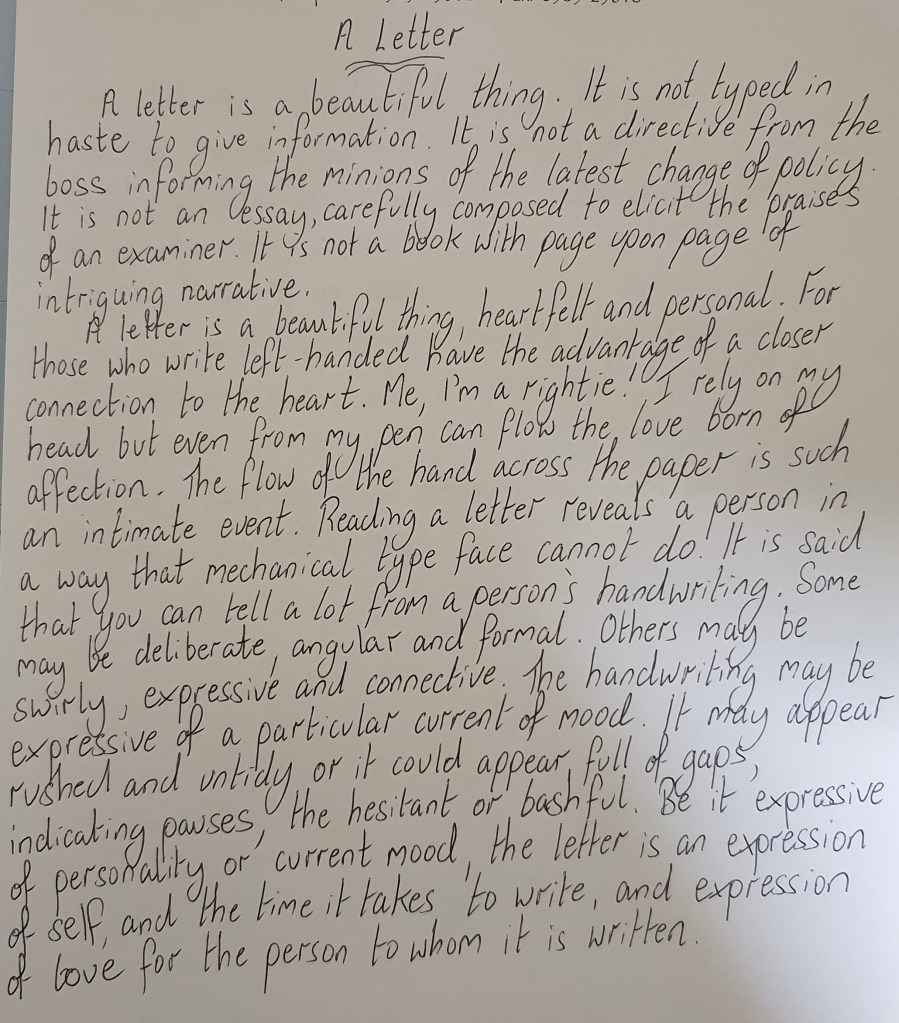 A Letter
A letter is a beautiful thing. It is not typed in
haste to give information. It is not a directive from the
boss informing the minions of the latest change of policy.
It is not an essay, carefully composed to elicit the praises
of an examiner. It is not a book with page upon page of
intriguing narrative.
A letter is a beautiful thing, heartfelt and personal. For
those who write left-handed have the advantage of a closer
connection to the heart. Me, I'm a rightie! I rely on my
head but even from my pen can flow the love born of
affection. The flow of the hand across the paper is such
an intimate event. Reading a letter reveals a person in
a way that mechanical type face cannot do! It is said
that you can tell a lot from a person's handwriting. Some
may be deliberate, angular and formal. Others may be
swirly, expressive and connective. The handwriting may be
expressive of a particular current of mood. It may appear
rushed and untidy or it could appear full of gaps,
indicating pauses, the hesitant or bashful. Be it expressive
of personality or current mood, the letter is an expression
of self, and the time it takes to write, and expression
of love for the person to whom it is written.